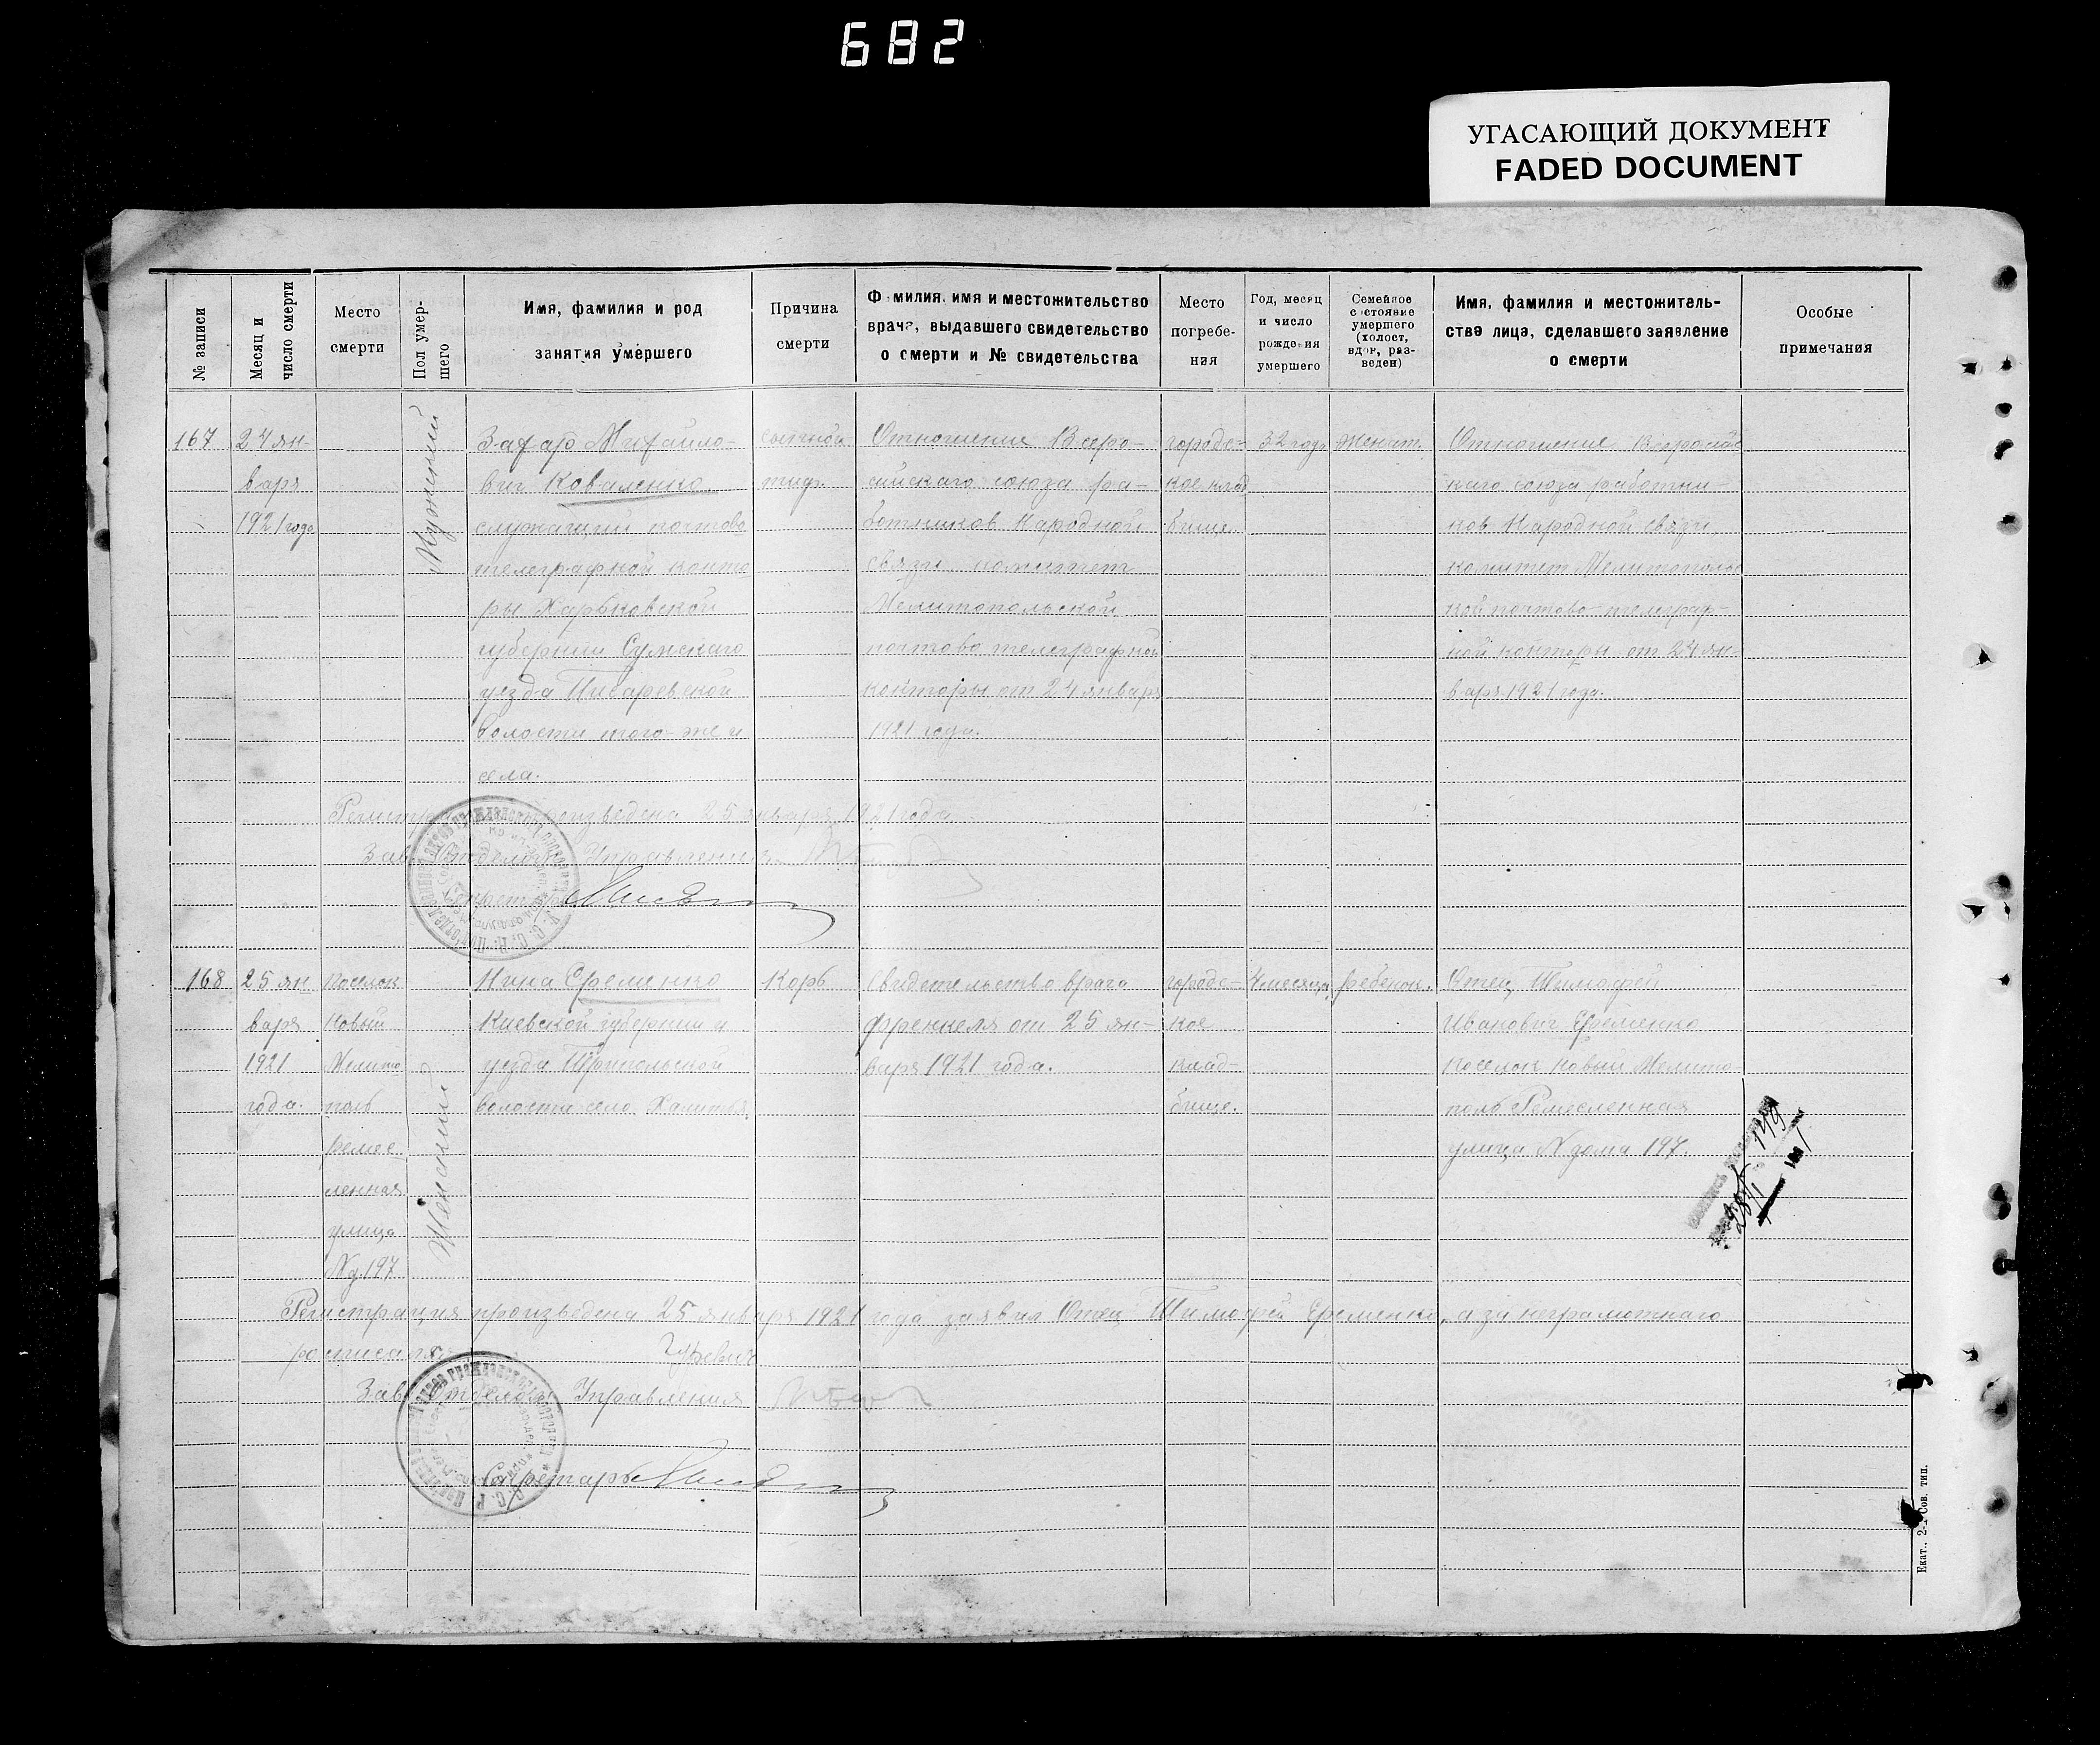 682
УГАСАЮЩИЙ ДОКУМЕНТ
FADED DOCUMENT
№ записи
Месяц и число смерти
Место смерти
Пол умершего
Имя, фамилия и род занятия умершего
Причина смерти
Фамилия, имя и местожительство врача, выдавшего свидетельство о смерти и № свидетельства
Место погребения
Год, месяц и число рождения умершего
Семейное состояние умершего (холост, вдов, разведен)
Имя, фамилия и местожительства лица, сделавшего заявление о смерти
Особые примечания
167
24 ян-
варя
1921 года
Мужской
Захар Михайло-
вич Коваленко
служащий почтово
телеграфной конто
ры Харьковской
губернии Сумскаго
уезда Писаревской
волости того-же и
села.
сыпной
тиф.
Отношение Всеро-
сийскаго союза ра-
ботников Народной
связи комитет
Мелитопольской
почтово телеграфной
конторы от 24 января
1921 года.
городс-
кое клад
бище.
32 года
женат.
Отношение Всеросийс
каго союза работни-
ков Народной связи,
комитет Мелитопольс
кой почтово-телеграф-
ной конторы от 24 ян-
варя 1921 года.
произведена 25 января 1921 года
Зав. Отделом Управления
Секретарь
168
25 ян
варя
1921
года.
поселок
Новый
Мелито
поль
ремес-
ленная
улица
№ д. 197
Женский
Нина Еременко
Киевской губернии и
уезда Трипольской
волости село Халитвя
Корь
Свидетельство врача
Френкеля от 25 ян-
варя 1921 года.
городс-
кое
клад-
бище.
4 месяца.
ребенок.
Отец Тимофей
Иванович Еременко
поселок Новый Мелито-
поль Ремесленная
улица № дома 197.
Регистрация произведена 25 января 1921 года заявил Отец Тимофей Еременко, а за неграмотнаго
росписался
Зав. Отделом Управления
Секретарь
Екат., 2-я Сов. тип.